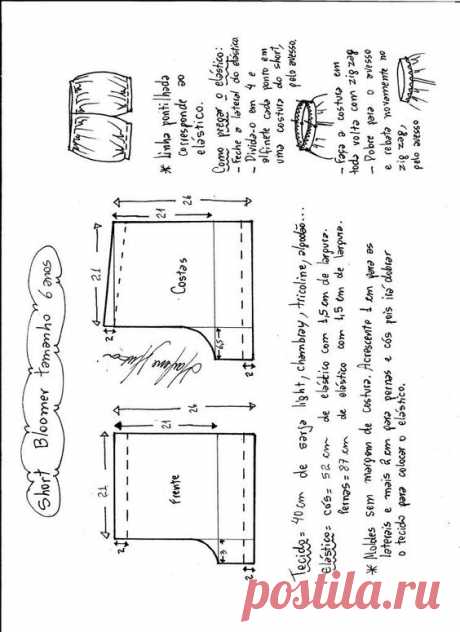 Short Bloomer tamanho 6 anos
26
21
21
Frente
2
3
2
26
21
21
Costas
2
6,5
2
* Linha pontilhada
corresponde ao
elástico.
Como pregar o elástico:
- Feche a lateral do elástico
- Divida-o em 4 e
alfinete cada ponto em
uma costura do short,
pelo avesso.
- Faça a costura em
toda volta com zig zag
- Dobre para o avesso
e rebata novamente no
zig zag,
pelo avesso
Tecido= 40 cm de sarja light, chambray, tricoline, algodão...
Elástico= cós= 52 cm de elástico com 1,5 cm de largura.
Pernas=87 cm de elástico com 1,5 cm de largura.
* Moldes sem margem de costura. Acrescente 1 cm para as
laterais e mais 2 cm para pernas e cós pois irá dobrar
o tecido para colocar o elástico.
postila.ru